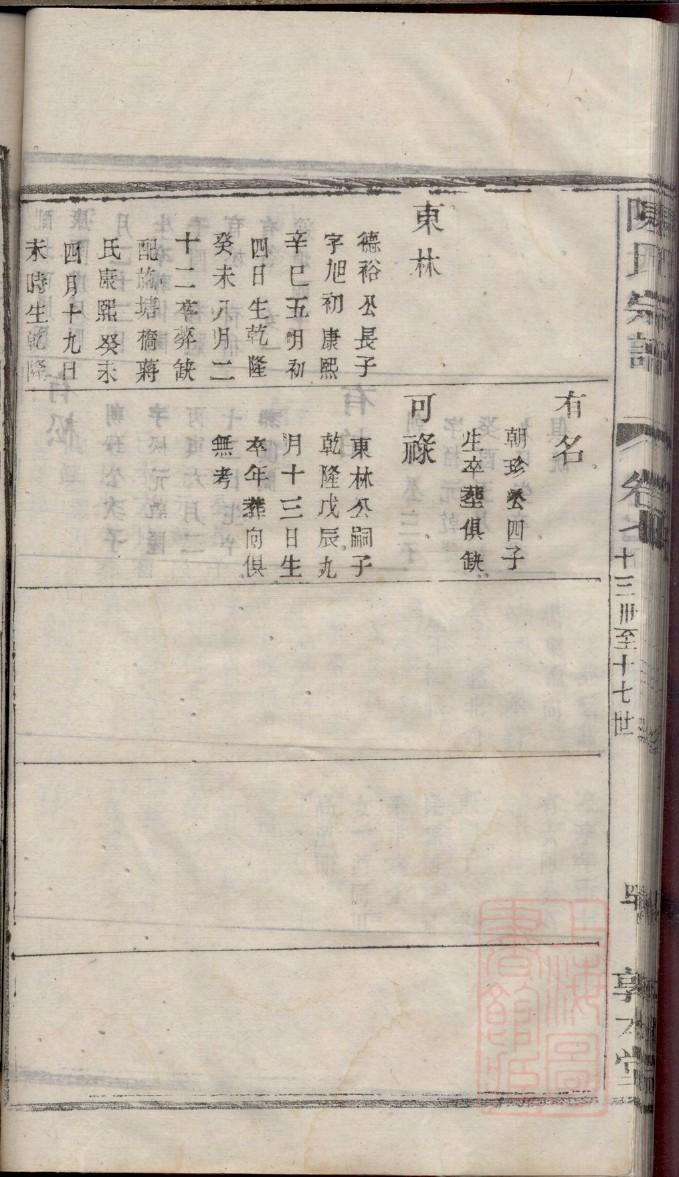 陳氏宗譜
卷之
十三卅至十七世
敦
堂
東林
德裕公長子
字旭初康熙
辛巳五月初
四日生乾隆
癸未八月二
十二卒葬缺
配施塘橋蔣
氏康熙癸未
四月十九日
未時生乾隆
有名
朝珍公四子
生卒塟俱缺
可祿
東林公嗣子
乾隆戊辰九
月十三日生
卒年葬向俱
無考
上海圖書館藏